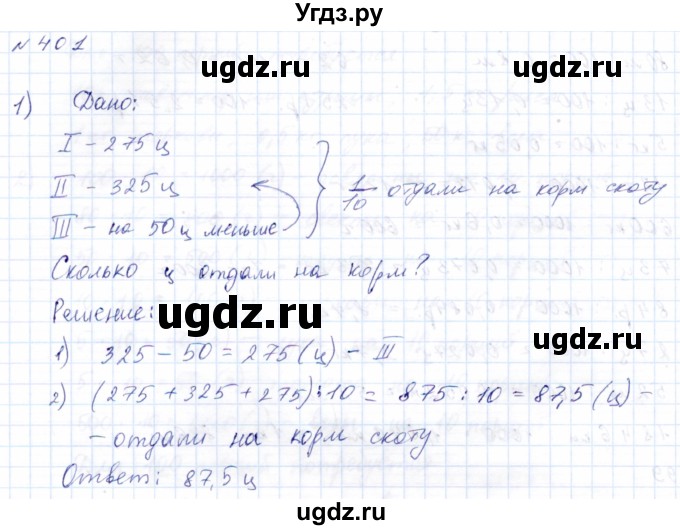 Угдз.ру
№ 401
ugdz.ru
1) Дано:
I - 275 ц
II - 325 ц
III - на 50 ц меньше
} 1/10 отдали на корм скоту
ugdz.ru
Сколько ц отдали на корм?
Решение:
ugdz.ru
1) 325 - 50 = 275 (ц) - III
2) (275 + 325 + 275) : 10 = 875 : 10 = 87,5 (ц) -
- отдали на корм скоту
Ответ: 87,5 ц
ugdz.ru